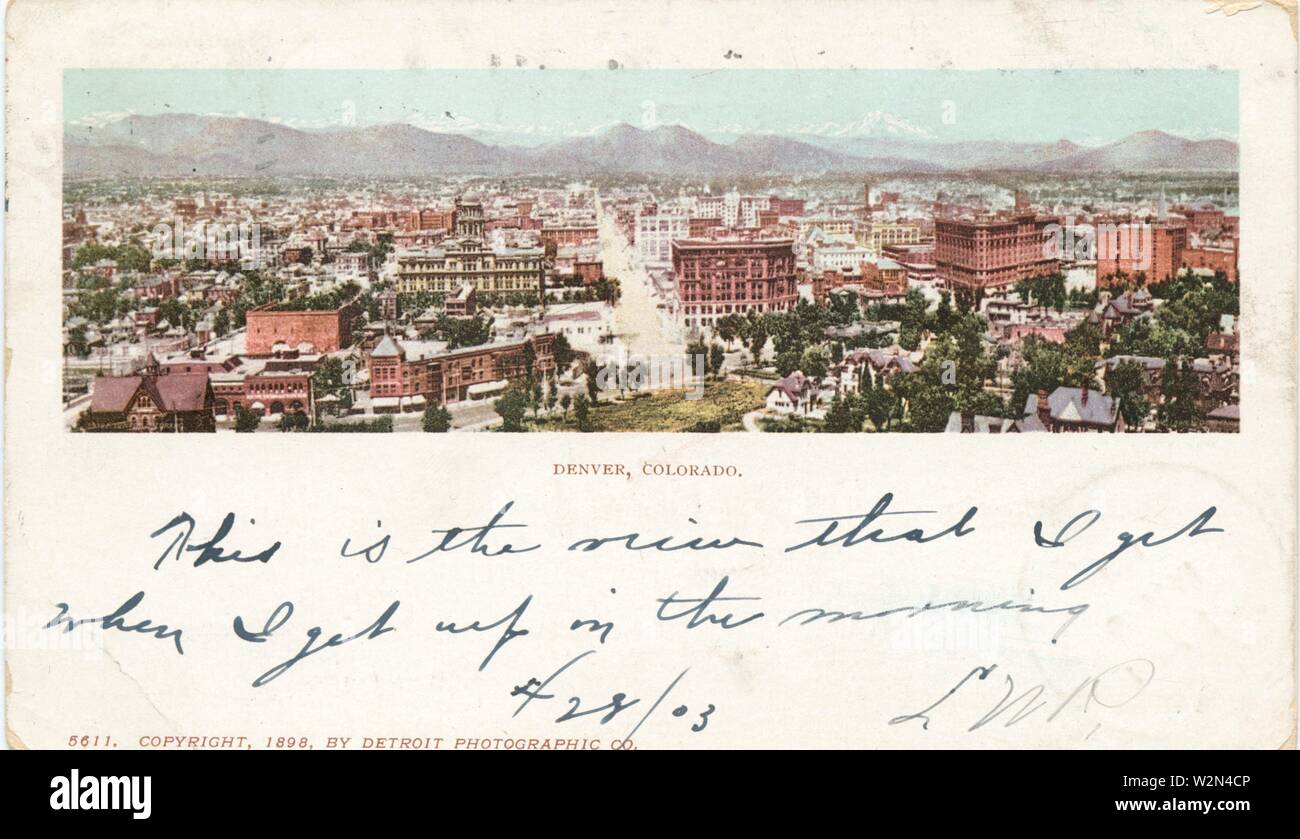 DENVER, COLORADO.
This is the view that I get
when I get up in the morning
4/28/03 L W R,
5611. COPYRIGHT, 1898, BY DETROIT PHOTOGRAPHIC CO.
alamy
alamy
Image ID: W2N4CP
www.alamy.com